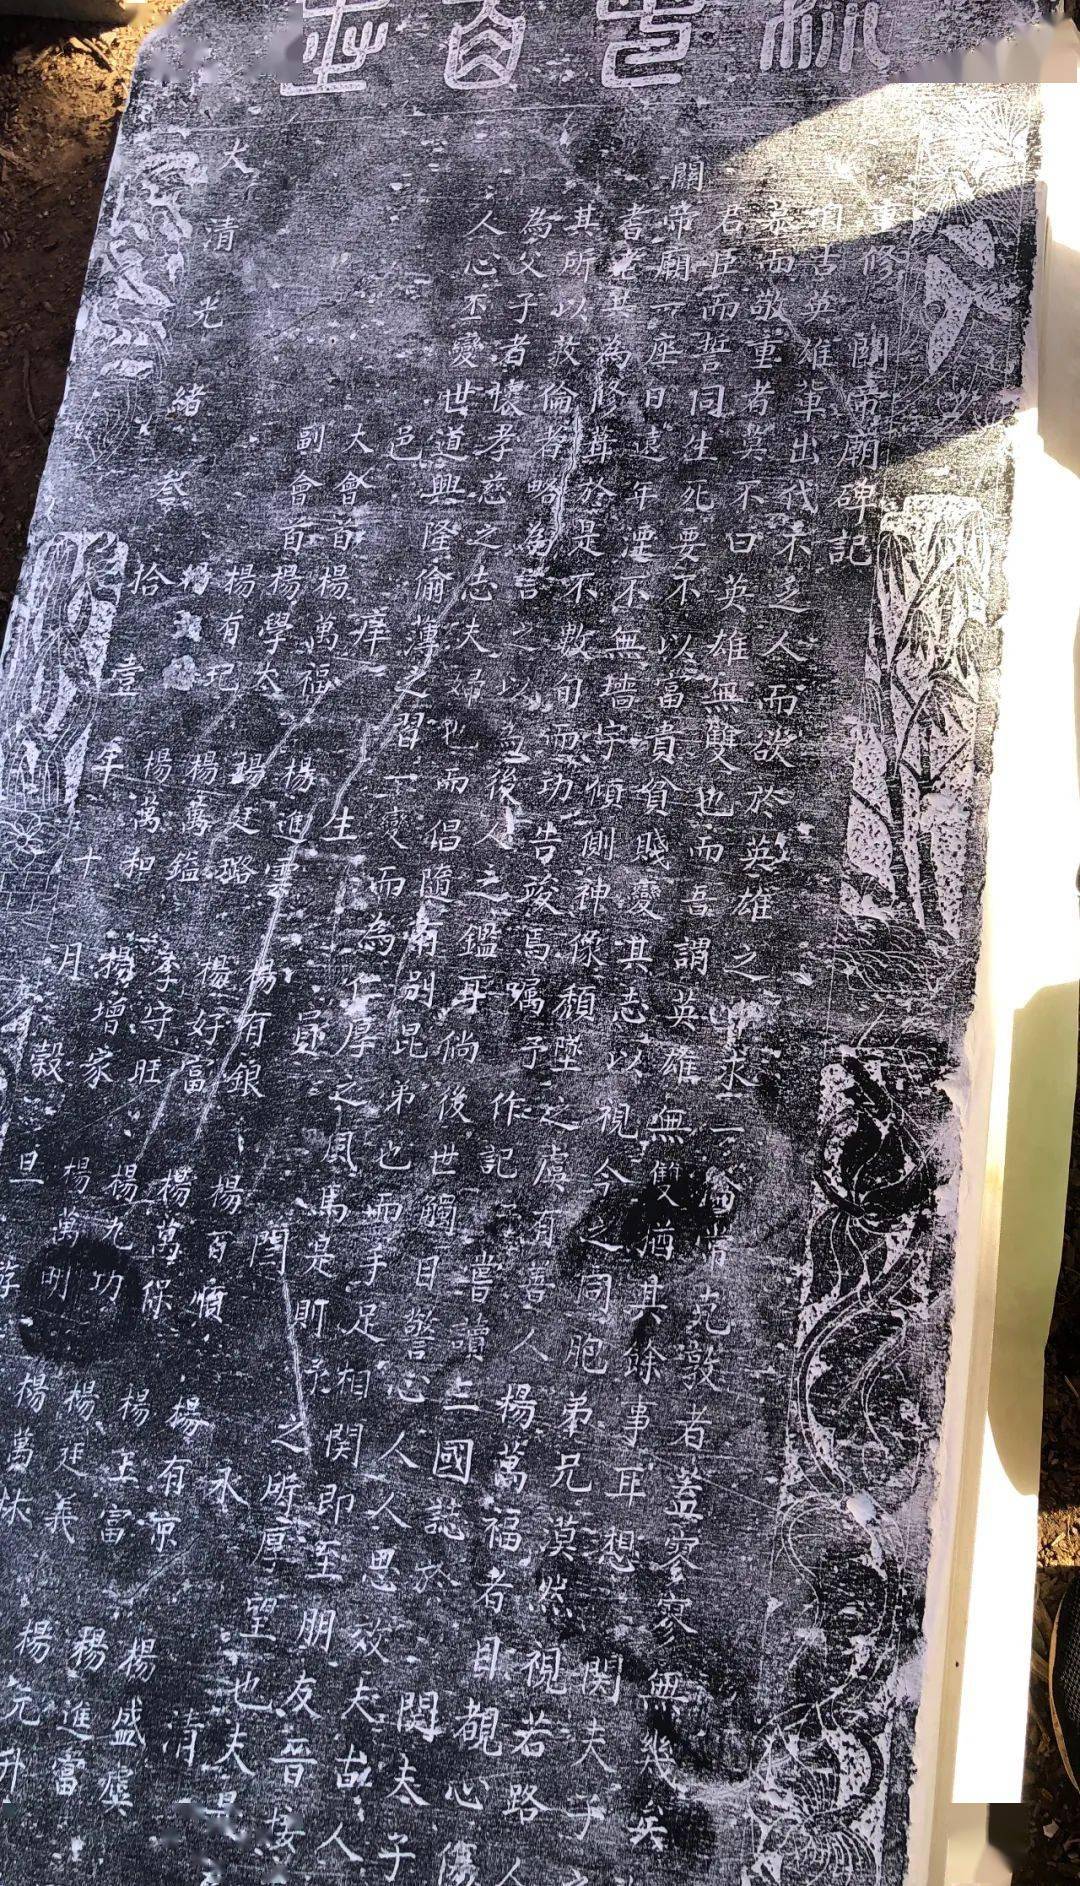 重修 關帝廟碑記
自古英雄輩出代不乏人而欲於英雄之中求一倫常克敦者蓋寥寥無幾矣
慕而敬重者莫不曰英雄無雙也而吾謂英雄無雙猶其餘事耳想 關夫子之
君臣而誓同生死要不以富貴貧賤變其志以視今之同胞弟兄漠然視若路人
關帝廟一座日遠年湮不無墻宇傾側神像頹墜之虞有善人楊萬福者目覩心傷
耆老共為修葺於是不數旬而功告竣焉囑予作記 嘗讀三國誌於 關夫子
其所以敦倫者略為言之以為後人之鑑耳倘後世觸目警心人人思效夫古人
為父子者懷孝慈之志夫婦也而倡隨有別昆弟也而手足相関即至朋友晉接
人心丕變世道興隆偷薄之習一變而為仁厚之風焉是則予之所厚望也夫是
邑庠生員 閆永清
大會首楊萬福 楊進雲 楊有銀 楊百順 楊有京 楊盛虞
副會首楊學太 楊廷璐 楊好富 楊萬保 楊玉富 楊進富
楊有玘 楊萬鎰 李守旺 楊九功 楊廷義 楊元升
楊 楊萬和 楊增家 楊萬明 楊萬
大清光緒叁拾壹年十月穀旦